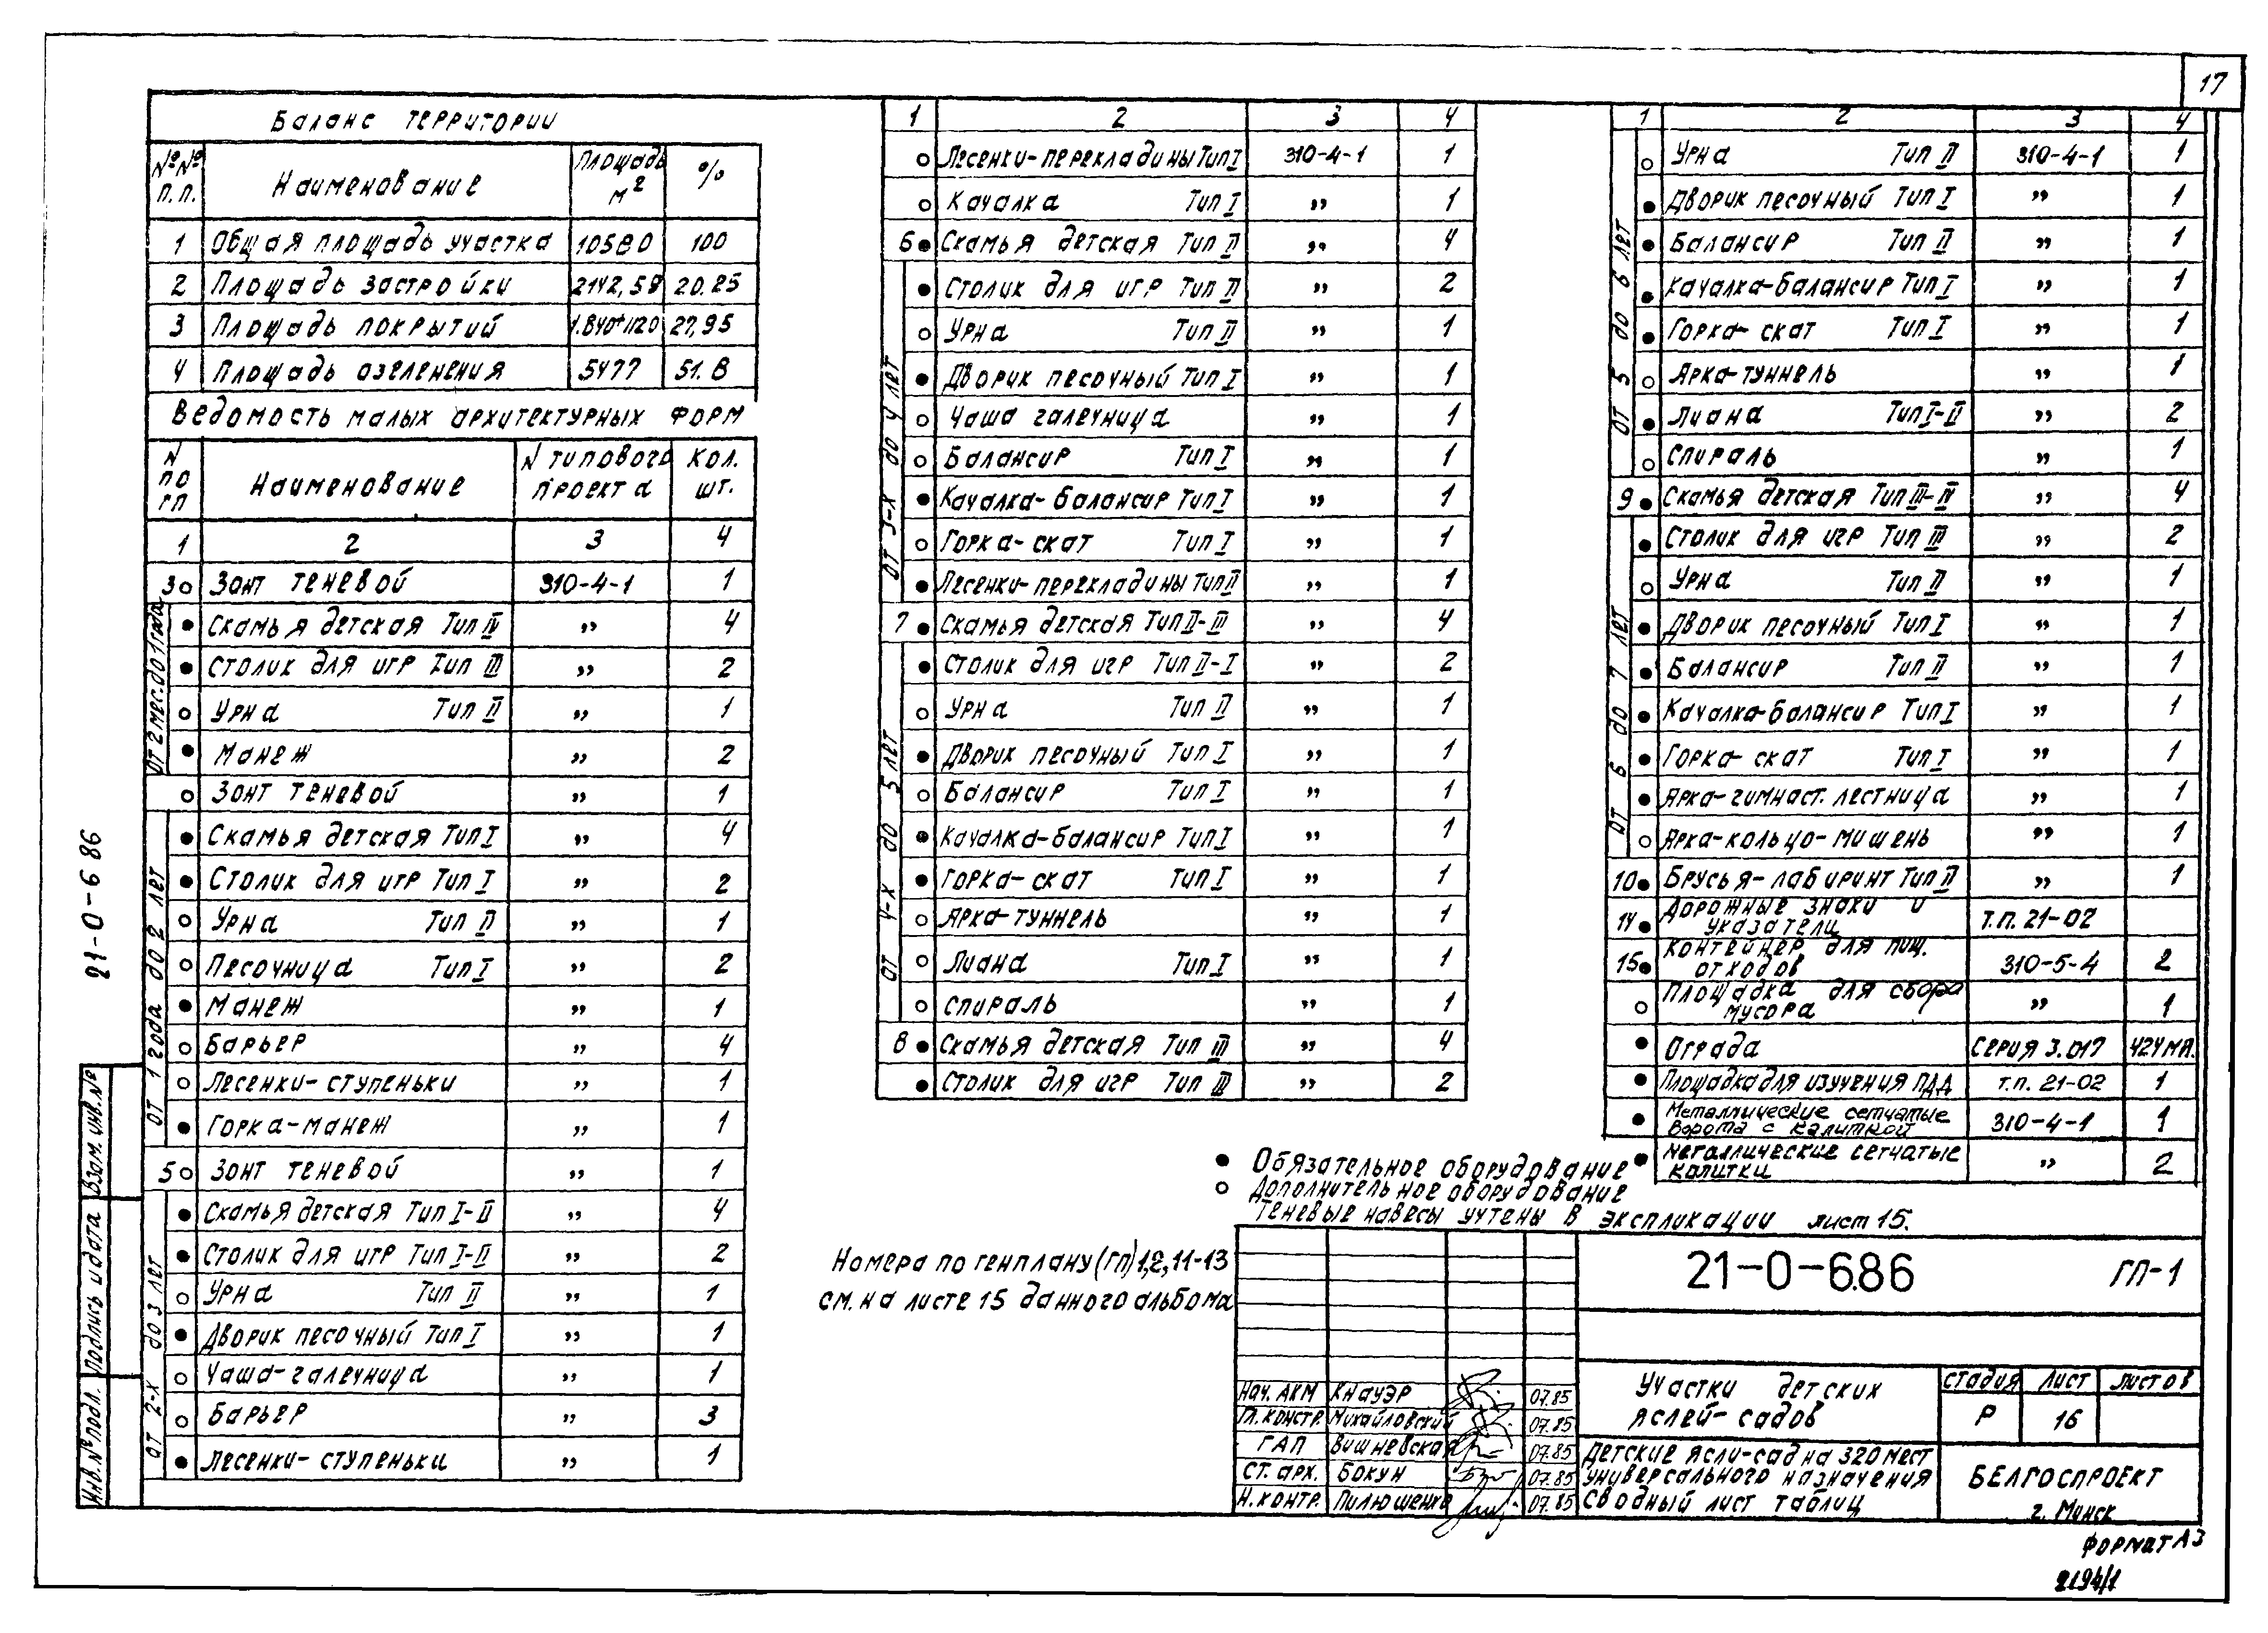 17
Баланс территории
№№ п.п. Наименование Площадь м² %
1 Общая площадь участка 10580 100
2 Площадь застройки 2142,58 20.25
3 Площадь покрытий 1.840+1120 27,95
4 Площадь озеленения 5477 51.8
Ведомость малых архитектурных форм
N по гп Наименование N типового проекта Кол. шт.
1 2 3 4
3 ○ Зонт теневой 310-4-1 1
от 2 мес. до 1 года
● Скамья детская Тип IV " 4
● Столик для игр Тип III " 2
○ Урна Тип II " 1
● Манеж " 2
○ Зонт теневой " 1
от 1 года до 2 лет
● Скамья детская Тип I " 4
● Столик для игр Тип I " 2
○ Урна Тип II " 1
○ Песочница Тип I " 2
● Манеж " 1
○ Барьер " 4
○ Лесенки-ступеньки " 1
● Горка-манеж " 1
5 ○ Зонт теневой " 1
от 2-х до 3 лет
● Скамья детская Тип I-II " 4
● Столик для игр Тип I-II " 2
○ Урна Тип II " 1
● Дворик песочный Тип I " 1
○ Чаша-галечница " 1
○ Барьер " 3
● Лесенки-ступеньки " 1
1 2 3 4
○ Лесенки-перекладины Тип I 310-4-1 1
○ Качалка Тип I " 1
6 ● Скамья детская Тип II " 4
от 3-х до 4 лет
● Столик для игр Тип II " 2
○ Урна Тип II " 1
● Дворик песочный Тип I " 1
○ Чаша галечница " 1
○ Балансир Тип I " 1
● Качалка-балансир Тип I " 1
○ Горка-скат Тип I " 1
● Лесенки-перекладины Тип II " 1
7 ● Скамья детская Тип II-III " 4
от 4-х до 5 лет
● Столик для игр Тип II-I " 2
○ Урна Тип II " 1
● Дворик песочный Тип I " 1
○ Балансир Тип I " 1
● Качалка-балансир Тип I " 1
● Горка-скат Тип I " 1
○ Арка-туннель " 1
○ Лиана Тип I " 1
○ Спираль " 1
8 ● Скамья детская Тип III " 4
● Столик для игр Тип III " 2
1 2 3 4
от 5 до 6 лет
○ Урна Тип II 310-4-1 1
● Дворик песочный Тип I " 1
● Балансир Тип II " 1
● Качалка-балансир Тип I " 1
● Горка-скат Тип I " 1
○ Арка-туннель " 1
● Лиана Тип I-II " 2
○ Спираль " 1
9 ● Скамья детская Тип III-IV " 4
от 6 до 7 лет
● Столик для игр Тип III " 2
○ Урна Тип II " 1
● Дворик песочный Тип I " 1
● Балансир Тип II " 1
● Качалка-балансир Тип I " 1
● Горка-скат Тип I " 1
● Арка-гимнаст. лестница " 1
○ Арка-кольцо-мишень " 1
10 ● Брусья-лабиринт Тип II " 1
14 ● Дорожные знаки и
указатели т.п. 21-02
15 ● Контейнер для пищ.
отходов 310-5-4 2
○ Площадка для сбора
мусора " 1
● Ограда серия 3.017 424 мп.
● Площадка для изучения ПДД т.п. 21-02 1
● Металлические сетчатые
ворота с калиткой 310-4-1 1
● Металлические сетчатые
калитки " 2
● Обязательное оборудование
○ Дополнительное оборудование
Теневые навесы учтены в экспликации лист 15.
Номера по генплану (ГП) 1,2, 11-13
см. на листе 15 данного альбома
21-0-6.86 ГП-1
Участки детских
яслей-садов
стадия лист листов
Р 16
Нач. АКМ Кнауэр 07.85
Гл. констр. Михайловский 07.85
ГАП Вишневская 07.85
Ст. арх. Бокун 07.85
Н. контр. Пилюшенко 07.85
Детские ясли-сад на 320 мест
универсального назначения
Сводный лист таблиц
БЕЛГОСПРОЕКТ
г. Минск
Формат А3
2194/1
21-0-6 86
Взам. инв. №
Подпись и дата
Инв. № подл.